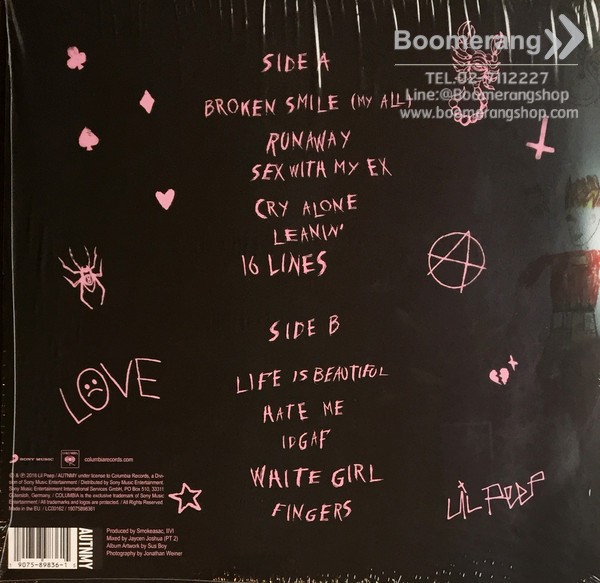 Boomerang
TEL.02-6112227
Line:@Boomerangshop
www.boomerangshop.com
SIDE A
BROKEN SMILE (MY ALL)
RUNAWAY
SEX WITH MY EX
CRY ALONE
LEANIN'
16 LINES
SIDE B
LIFE IS BEAUTIFUL
HATE ME
IDGAF
WHITE GIRL
FINGERS
LOVE
LIL PEEP
SONY MUSIC
columbiarecords.com
2018 Lil Peep / AUTNMY under license to Columbia Records, a Divi-
sion of Sony Music Entertainment / Distributed by Sony Music Entertainment.
Sony Music Entertainment International Services GmbH, PO Box 510, 33311
Gütersloh, Germany. / COLUMBIA is the exclusive trademark of Sony Music
Entertainment / All trademarks and logos are protected. / All Rights Reserved
Made in the EU. / LC00162 / 19075898361
AUTNMY
Produced by Smokeasac, IIVI
Mixed by Jaycen Joshua (PT 2)
Album Artwork by Sus Boy
Photography by Jonathan Weiner
9075-89836-1